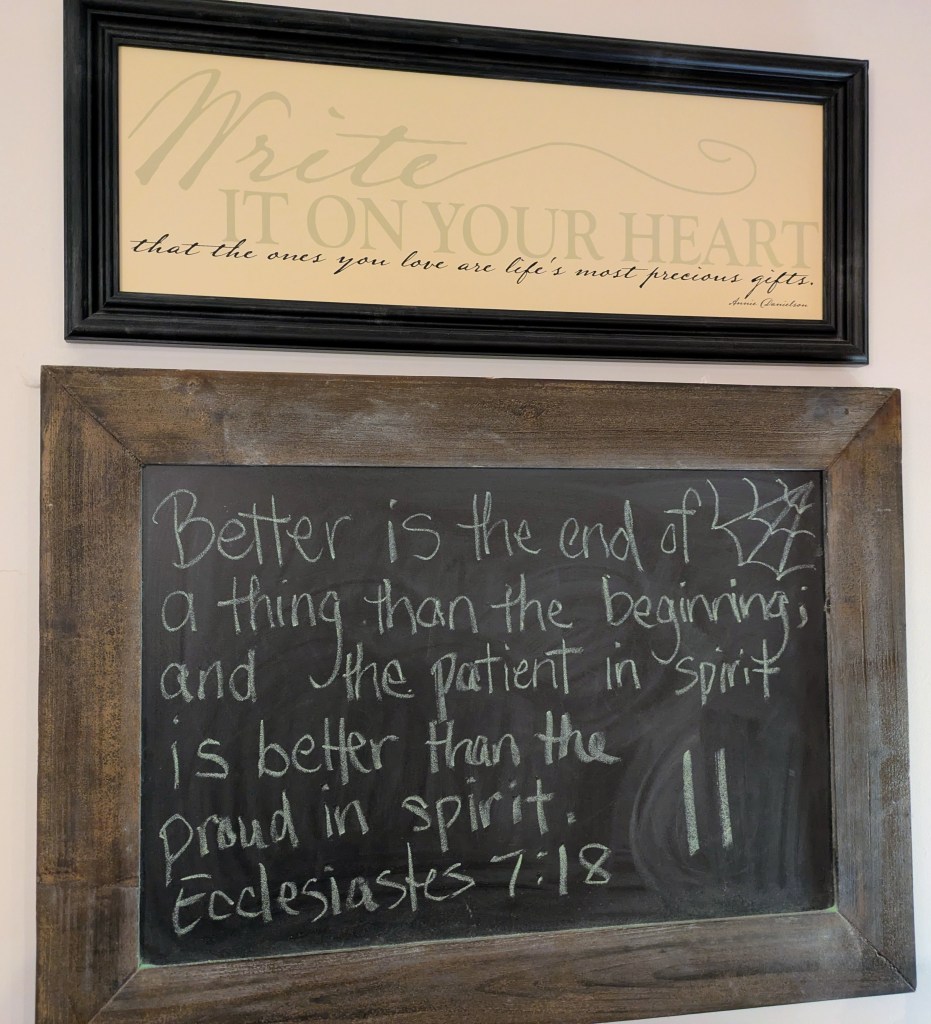 Write
IT ON YOUR HEART
that the ones you love are life's most precious gifts.
Annie Danielson
Better is the end of
a thing than the beginning;
and the patient in spirit
is better than the
proud in spirit.
11
Ecclesiastes 7:18